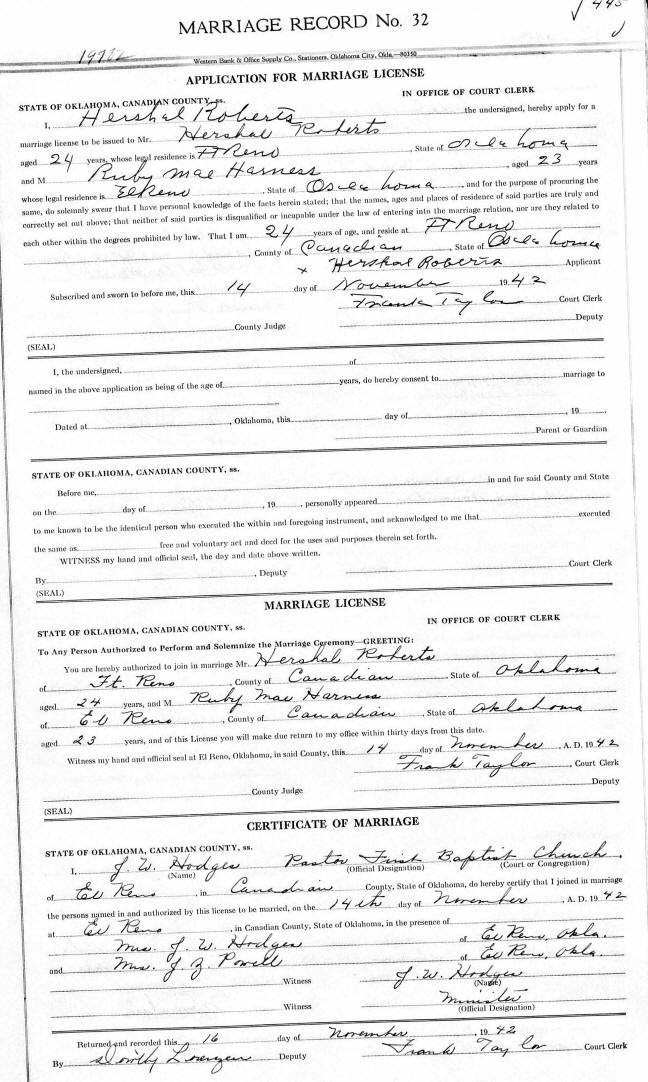 MARRIAGE RECORD No. 32
445
Western Bank & Office Supply Co., Stationers, Oklahoma City, Okla.—80150
APPLICATION FOR MARRIAGE LICENSE
STATE OF OKLAHOMA, CANADIAN COUNTY, ss. IN OFFICE OF COURT CLERK
I, Hershal Roberts the undersigned, hereby apply for a
marriage license to be issued to Mr. Hershal Roberts
aged 24 years, whose legal residence is Ft Reno, State of Oklahoma
and M Ruby Mae Harness, aged 23 years
whose legal residence is El Reno, State of Oklahoma, and for the purpose of procuring the
same, do solemnly swear that I have personal knowledge of the facts herein stated; that the names, ages and places of residence of said parties are truly and
correctly set out above; that neither of said parties is disqualified or incapable under the law of entering into the marriage relation, nor are they related to
each other within the degrees prohibited by law. That I am 24 years of age, and reside at Ft Reno
, County of Canadian, State of Oklahoma
x Hershal Roberts Applicant
Subscribed and sworn to before me, this 14 day of November 1942
Frank Taylor Court Clerk
County Judge Deputy
(SEAL)
I, the undersigned, of
named in the above application as being of the age of years, do hereby consent to marriage to
Dated at , Oklahoma, this day of , 19 .
Parent or Guardian
STATE OF OKLAHOMA, CANADIAN COUNTY, ss.
Before me, in and for said County and State
on the day of , 19 , personally appeared
to me known to be the identical person who executed the within and foregoing instrument, and acknowledged to me that executed
the same as free and voluntary act and deed for the uses and purposes therein set forth.
WITNESS my hand and official seal, the day and date above written.
Court Clerk
By , Deputy
(SEAL)
MARRIAGE LICENSE
STATE OF OKLAHOMA, CANADIAN COUNTY, ss. IN OFFICE OF COURT CLERK
To Any Person Authorized to Perform and Solemnize the Marriage Ceremony—GREETING:
You are hereby authorized to join in marriage Mr. Hershal Roberts
of Ft. Reno, County of Canadian, State of Oklahoma
aged 24 years, and M Ruby Mae Harness
of El Reno, County of Canadian, State of Oklahoma
aged 23 years, and of this License you will make due return to my office within thirty days from this date.
Witness my hand and official seal at El Reno, Oklahoma, in said County, this 14 day of November, A. D. 1942
Frank Taylor, Court Clerk
County Judge Deputy
(SEAL)
CERTIFICATE OF MARRIAGE
STATE OF OKLAHOMA, CANADIAN COUNTY, ss.
I, J. W. Hodges Pastor First Baptist Church,
(Name) (Official Designation) (Court or Congregation)
of El Reno, in Canadian County, State of Oklahoma, do hereby certify that I joined in marriage
the persons named in and authorized by this license to be married, on the 14th day of November, A. D. 1942
at El Reno, in Canadian County, State of Oklahoma, in the presence of
Mrs. J. W. Hodges of El Reno, Okla.
and Mrs. J. Z. Powell of El Reno, Okla.
Witness J. W. Hodges
(Name)
Witness Minister
(Official Designation)
Returned and recorded this 16 day of November, 1942
By Deputy Frank Taylor Court Clerk